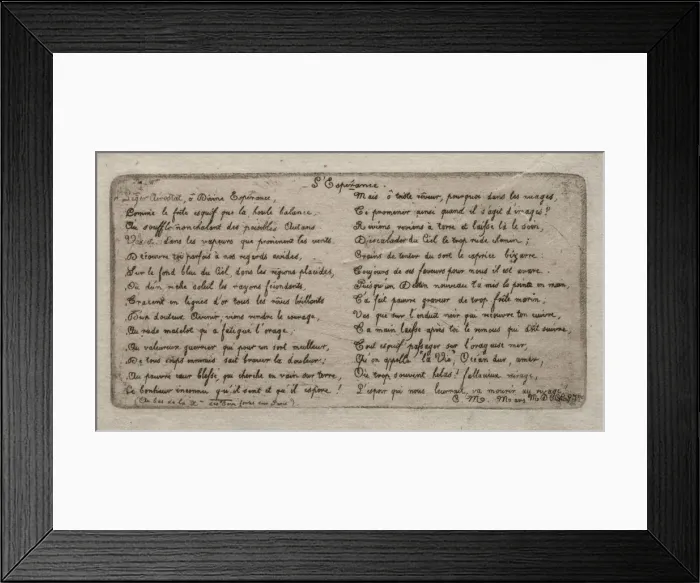 L'Espérance.
Léger Aérostat, ô Divine Espérance,
Comme le frêle esquif que la houle balance,
Au souffle nonchalant des paisibles Autans
Vas dans les vapeurs que promènent les vents.
Découvre toi parfois à nos regards avides,
Sur le fond bleu du Ciel, dans les régions placides,
Où d'un riche soleil les rayons
Tracent en lignes d'or tous les rêves brillants
Doux docteur Avenir, viens rendre le courage,
Au rude matelot qu'a fatigué l'orage,
Au valeureux guerrier qui pour un sort meilleur,
De tous coups ennemis sait braver la douleur;
Au pauvre cœur blessé, qui cherche en vain sur terre
Le bonheur inconnu qu'il sent et qu'il espère!
(Au bas de la
Mais ô triste rêveur, pourquoi dans les nuages,
Te promener ainsi quand il s'agit d'images?
Reviens, reviens à terre et laisse là le soin,
D'escalader du Ciel le trop rude chemin;
Crains de tenter du sort le caprice bizarre
Toujours de ses faveurs pour nous il est avare.
Puisqu'un Destin nouveau t'a mis la pointe en main,
T'a fait pauvre graveur de trop frêle
Vois que sur l'enduit noir qui recouvre ton cuivre,
Ta main laisse après toi le remous qui doit suivre,
Tout esquif passager sur l'orageuse mer,
Qu'on appelle "la Vie", Océan dur, amer,
Où trop souvent hélas! fallacieux mirage,
L'espoir qui nous leurrait, va mourir au rivage!
C. M.